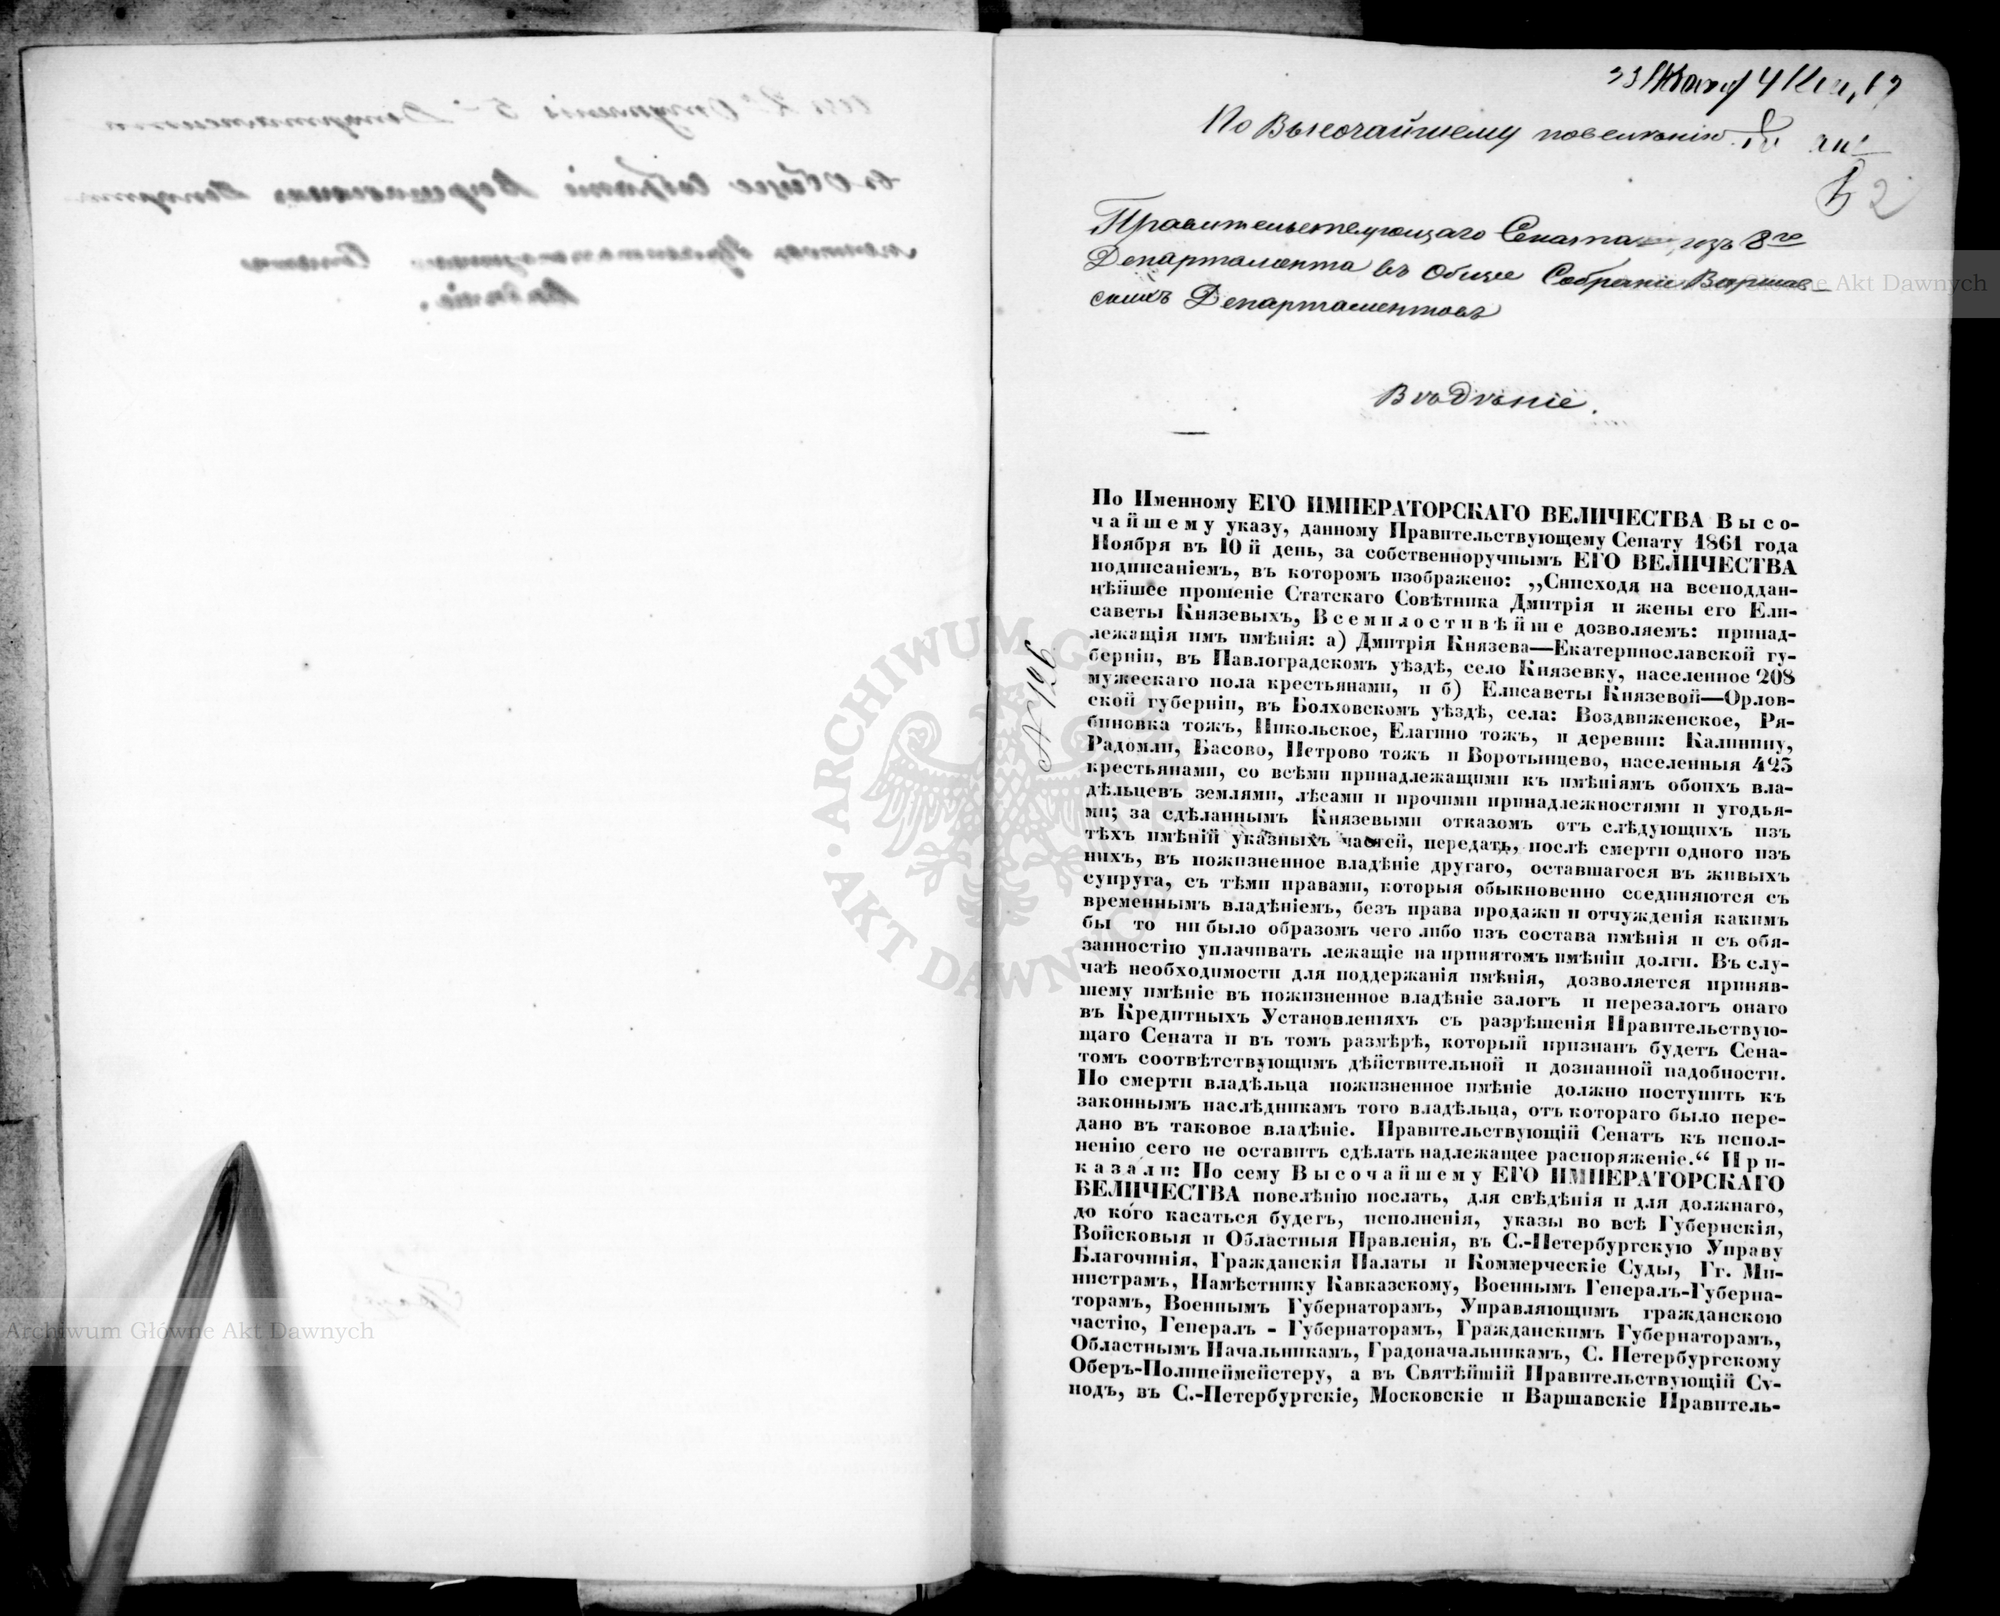 По Высочайшему повелѣнію
2
Правительствующаго Сената изъ 8го
Департамента въ Общее Собраніе Варшав-
скихъ Департаментовъ
Вѣдѣніе.
№ 126
По Именному ЕГО ИМПЕРАТОРСКАГО ВЕЛИЧЕСТВА Высо-
чайшему указу, данному Правительствующему Сенату 1861 года
Ноября въ 10 й день, за собственноручнымъ ЕГО ВЕЛИЧЕСТВА
подписаніемъ, въ которомъ изображено: „Снисходя на всеподдан-
нѣйшее прошеніе Статскаго Совѣтника Дмитрія и жены его Ели-
саветы Князевыхъ, Всемилостивѣйше дозволяемъ: принад-
лежащія имъ имѣнія: а) Дмитрія Князева—Екатеринославской гу-
берніи, въ Павлоградскомъ уѣздѣ, село Князевку, населенное 208
мужескаго пола крестьянами, и б) Елисаветы Князевой—Орлов-
ской губерніи, въ Болховскомъ уѣздѣ, села: Воздвиженское, Ря-
биновка тожъ, Никольское, Елагино тожъ, и деревни: Калинину,
Радомли, Басово, Петрово тожъ и Воротынцево, населенныя 423
крестьянами, со всѣми принадлежащими къ имѣніямъ обоихъ вла-
дѣльцевъ землями, лѣсами и прочими принадлежностями и угодья-
ми; за сдѣланнымъ Князевыми отказомъ отъ слѣдующихъ изъ
тѣхъ имѣній указныхъ частей, передать, послѣ смерти одного изъ
нихъ, въ пожизненное владѣніе другаго, оставшагося въ живыхъ
супруга, съ тѣми правами, которыя обыкновенно соединяются съ
временнымъ владѣніемъ, безъ права продажи и отчужденія какимъ
бы то ни было образомъ чего либо изъ состава имѣнія и съ обя-
занностію уплачивать лежащіе на принятомъ имѣніи долги. Въ слу-
чаѣ необходимости для поддержанія имѣнія, дозволяется приняв-
шему имѣніе въ пожизненное владѣніе залогъ и перезалогъ онаго
въ Кредитныхъ Установленіяхъ съ разрѣшенія Правительствую-
щаго Сената и въ томъ размѣрѣ, который признанъ будетъ Сена-
томъ соотвѣтствующимъ дѣйствительной и дознанной надобности.
По смерти владѣльца пожизненное имѣніе должно поступить къ
законнымъ наслѣдникамъ того владѣльца, отъ котораго было пере-
дано въ таковое владѣніе. Правительствующій Сенатъ къ испол-
ненію сего не оставитъ сдѣлать надлежащее распоряженіе.“ При-
казали: По сему Высочайшему ЕГО ИМПЕРАТОРСКАГО
ВЕЛИЧЕСТВА повелѣнію послать, для свѣдѣнія и для должнаго,
до кого касаться будетъ, исполненія, указы во всѣ Губернскія,
Войсковыя и Областныя Правленія, въ С.-Петербургскую Управу
Благочинія, Гражданскія Палаты и Коммерческіе Суды, Гг. Ми-
нистрамъ, Намѣстнику Кавказскому, Военнымъ Генералъ-Губерна-
торамъ, Военнымъ Губернаторамъ, Управляющимъ гражданскою
частію, Генералъ - Губернаторамъ, Гражданскимъ Губернаторамъ,
Областнымъ Начальникамъ, Градоначальникамъ, С. Петербургскому
Оберъ-Полицеймейстеру, а въ Святѣйшій Правительствующій Сѵ-
нодъ, въ С.-Петербургскіе, Московскіе и Варшавскіе Правитель-
ARCHIWUM GŁÓWNE AKT DAWNYCH
Archiwum Główne Akt Dawnych
Archiwum Główne Akt Dawnych